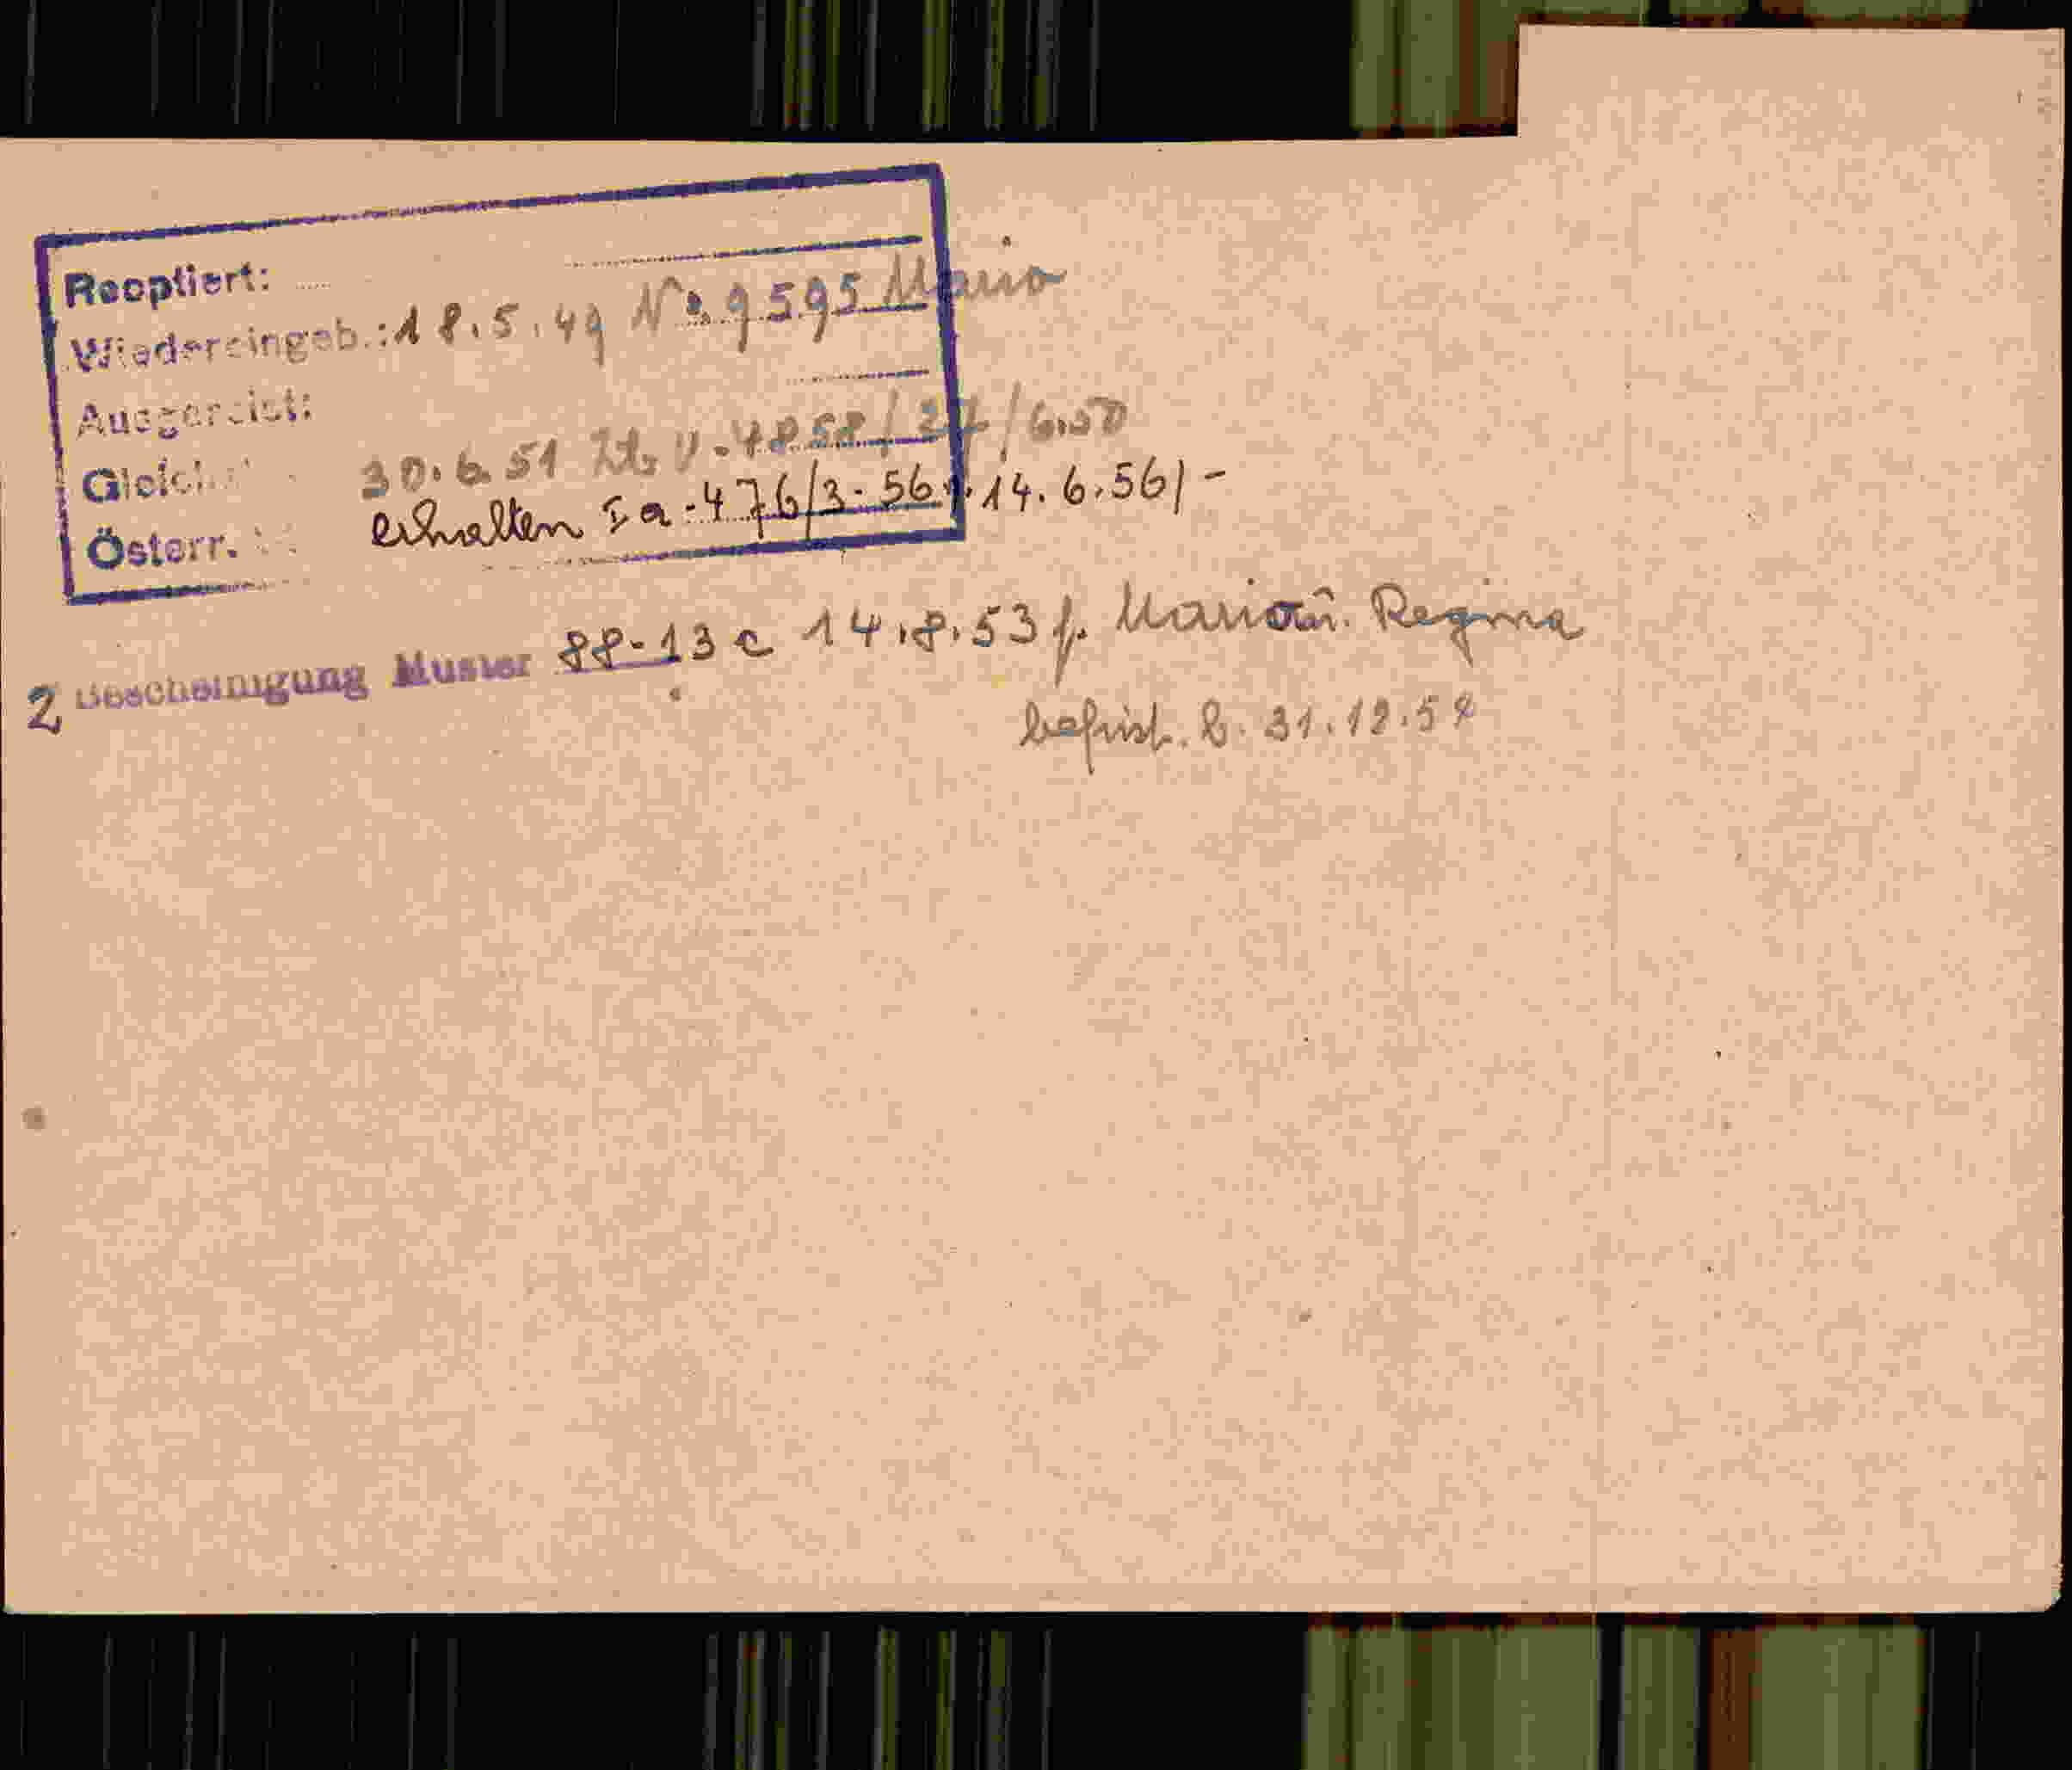 Reoptiert:
Wiedereingeb.: 18.5.49 No. 9595 Maria
Ausgereist:
30.6.51 /6.50
Österr. erhalten I a-476/3-56 14.6.56/-
2 Bescheinigung Muster 88-13 c 14.8.53 f. Maria u. Regina
befrist. b. 31.12.